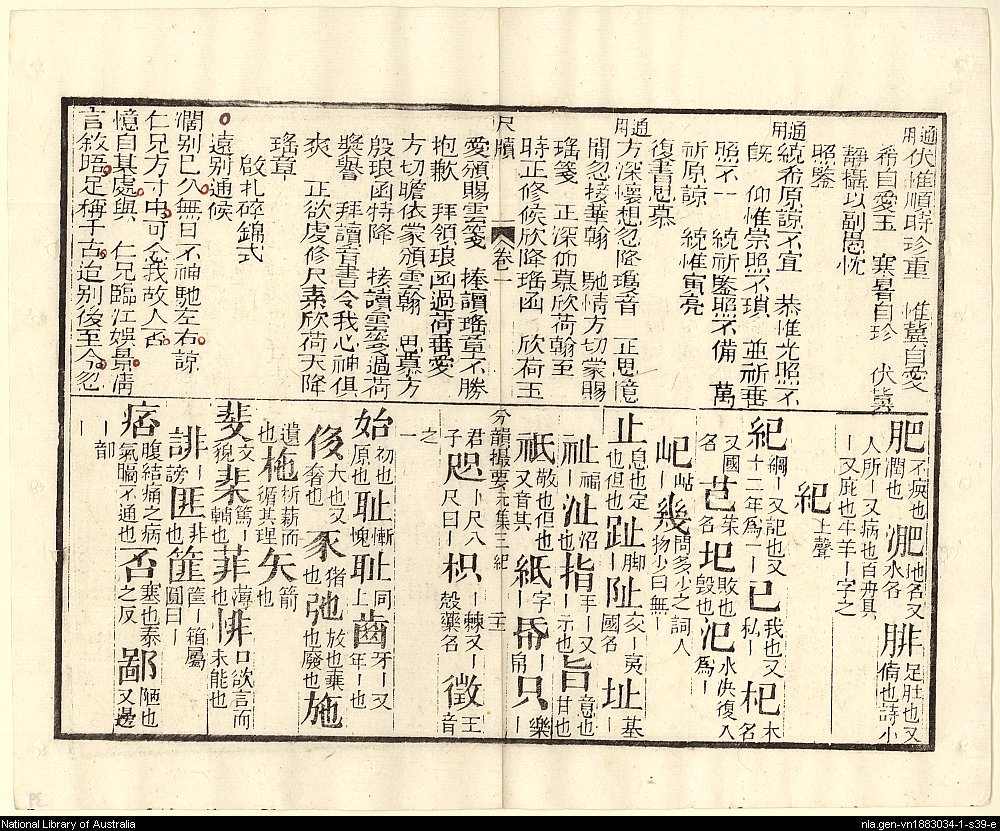 通用 伏惟順時珍重 惟冀自愛
希自愛玉 寒暑自珍 伏冀
靜攝以副愚忱
照鑒
通用 統希原諒不宣 恭惟光照不
既 仰惟崇照不瑣 並祈垂
照不一 統祈鑒照不備 萬
祈原諒 統惟寅亮
復書思慕
通用 方深懷想忽降瓊音 正思憶
間忽接華翰 馳情方切蒙賜
瑤箋 正深仰慕欣荷翰至
時正修候欣降瑤函 欣荷玉
尺牘 卷一
愛頒賜雲箋 捧讀瑤章不勝
抱歉 拜領琅函過荷垂愛
方切瞻依蒙頒雲翰 思慕方
殷琅函特降 接讀雲箋過荷
獎譽 拜讀音書令我心神俱
爽 正欲虔修尺素欣荷天降
瑤章
啟札碎錦式
遠別通候
濶别已久無日不神馳左右諒
仁兄方寸中可念我故人否
憶自某處與 仁兄臨江娛景情
言敘晤足稱千古追别後至今忽
肥 不瘐也潤也 淝 地名又水名 腓 足肚也又俻也詩小
人所丨又病也百卉具
丨又庇也牛羊丨字之
紀 上聲
紀 綱丨又記也又十二年為一丨 已 我也又私丨 杞 木名
又國名 芑 菜名 圯 敗也毁也 汜 水决復入為丨
屺 岵丨 幾 問多少之詞人物少曰無丨
止 息也定也但也 趾 脚丨 阯 交丨夷國名 址 基丨
祉 福也 沚 沼也 指 手丨又丨示也 旨 意也甘也
祇 敬也但也又音其 紙 字丨 帋 丨帛 只 樂丨
分韻撮要元集三紀 二十一
君子 咫 丨尺八尺曰丨 枳 丨棘又丨殼藥名 徵 王音
之一
始 初也原也 恥 慚愧 耻 同上 齒 牙丨又年丨也
侈 大也又奢也 豕 猪也 弛 放也棄也廢也 施
遺也 杝 析薪而循其理 矢 箭也
斐 文貌 棐 篤丨輔也 菲 薄丨也 悱 口欲言而未能也
誹 丨謗 匪 非也 篚 筐丨箱屬圓曰丨
痞 腹結痛之病氣膈不通也 否 塞也泰之反 鄙 陋也又邊
丨 丨部
National Library of Australia
nla.gen-vn1883034-1-s39-e